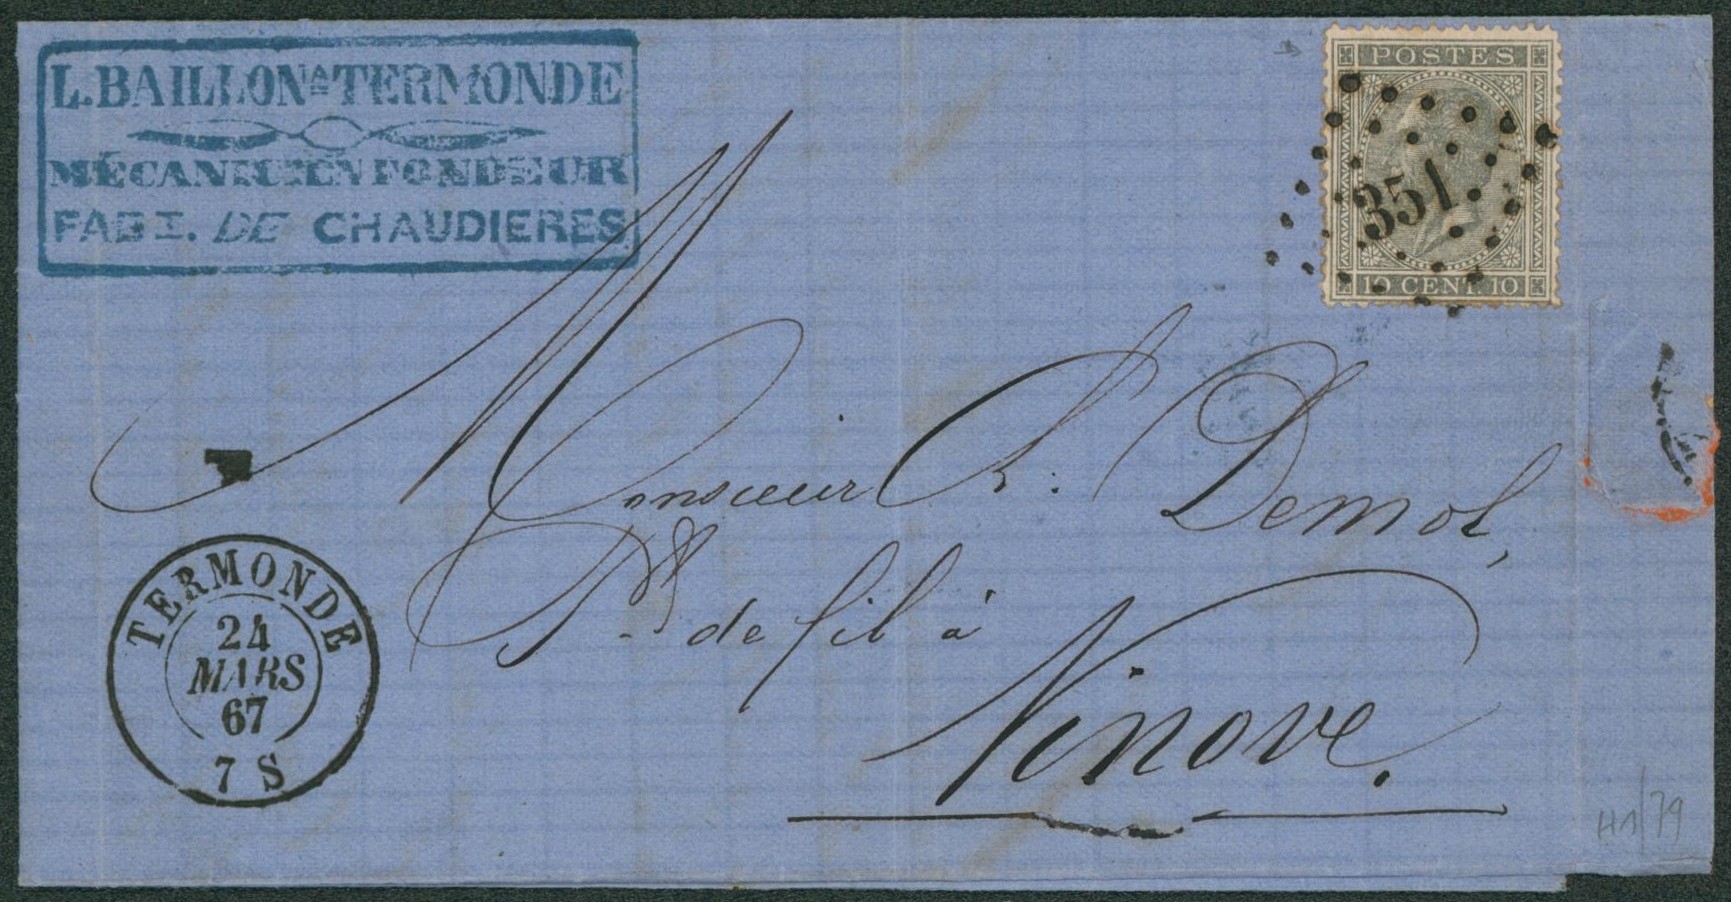 L. BAILLON A TERMONDE
MÉCANICIEN FONDEUR
FABT. DE CHAUDIERES
POSTES
351
10 CENT. 10
Monsieur
Demol,
de fil à
Ninove.
TERMONDE
24
MARS
67
7 S
H1/79